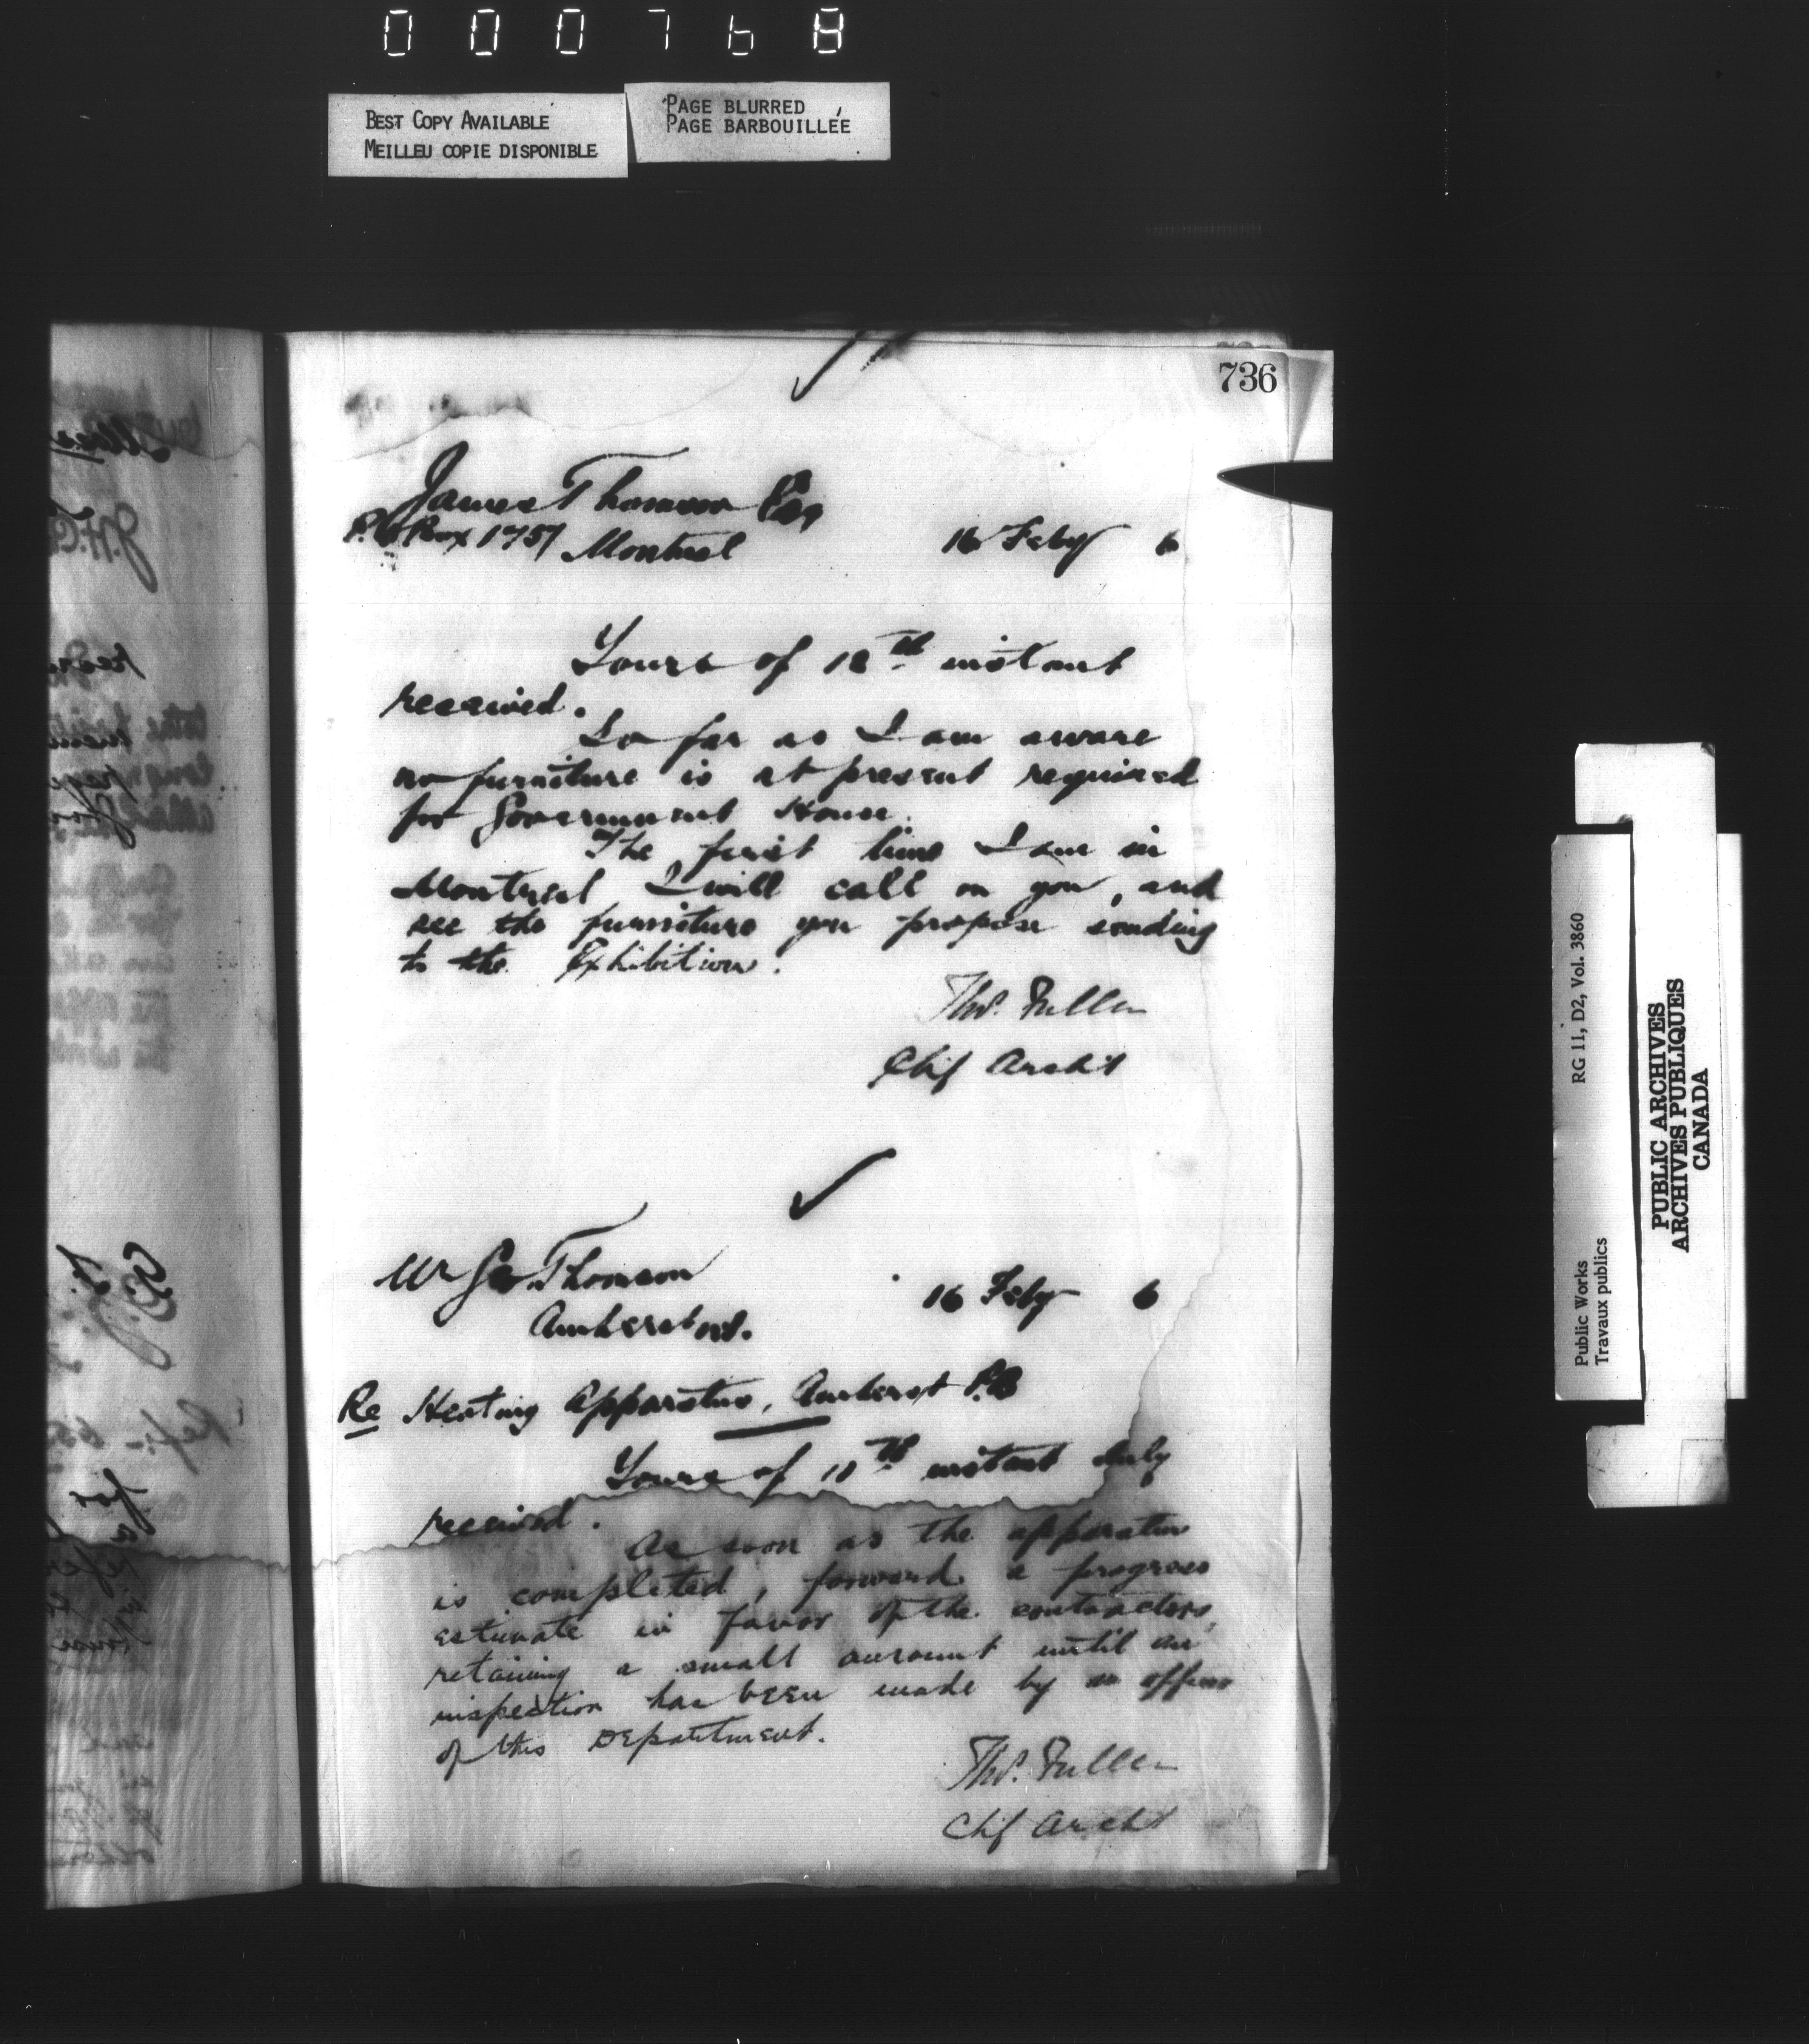 000768
BEST COPY AVAILABLE
MEILLEU COPIE DISPONIBLE
PAGE BLURRED
PAGE BARBOUILLÉE
736
James Thomson Esq
P.O Box 1757 Montreal
16 Feby 6
Yours of 12th instant
received.
So far as I am aware
no furniture is at present required
for Government House.
The first time I am in
Montreal I will call on you, and
see the furniture you propose sending
to the Exhibition.
Thos. Fuller
Chif Archt
Mr Geo Thomson
Amherst NS.
16 Feby 6
Re Heating Apparatus, Amherst P.B
Yours of 11th instant duly
received.
As soon as the apparatus
is completed, forward a progress
estimate in favor of the contractors,
retaining a small amount until an
inspection has been made by an officer
of this Department.
Thos. Fuller
Chif Archt
Public Works
Travaux publics
RG 11, D2, Vol. 3860
PUBLIC ARCHIVES
ARCHIVES PUBLIQUES
CANADA